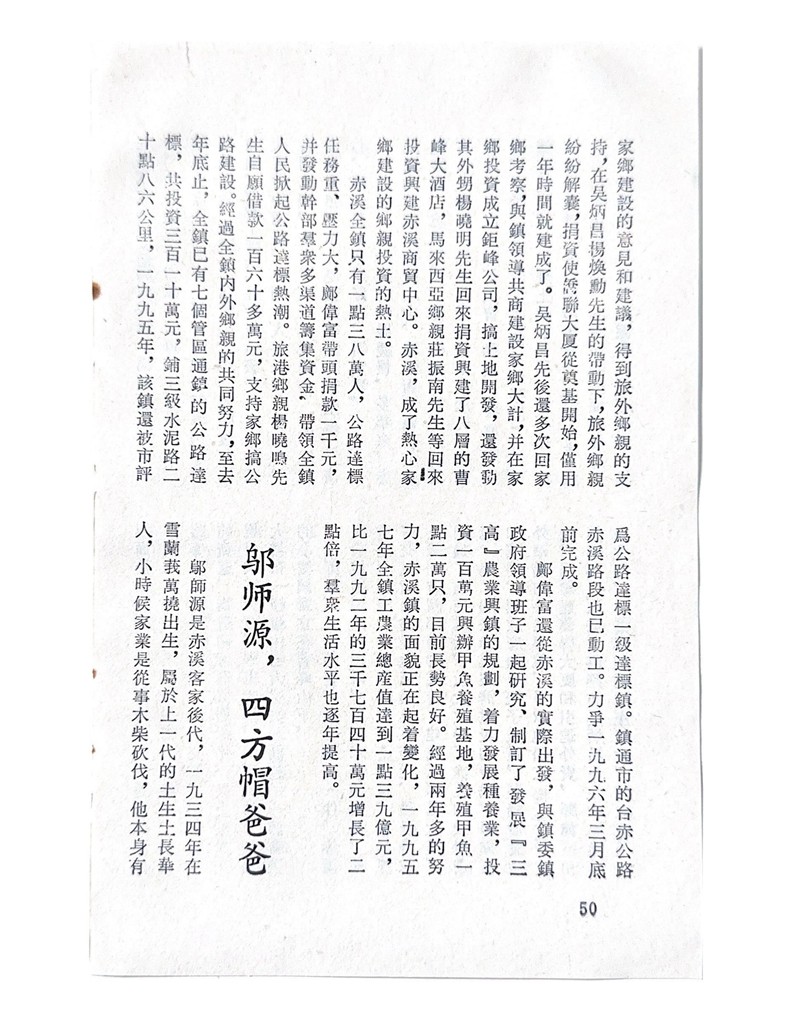 家鄉建設的意見和建議，得到旅外鄉親的支
持，在吳炳昌揚煥勳先生的帶動下，旅外鄉親
紛紛解囊，捐資使僑聯大廈從奠基開始，僅用
一年時間就建成了。吳炳昌先後還多次回家
鄉考察，與鎮領導共商建設家鄉大計，并在家
鄉投資成立鉅峰公司，搞土地開發，還發動
其外甥楊曉明先生回來捐資興建了八層的曹
峰大酒店，馬來西亞鄉親莊振南先生等回來
投資興建赤溪商貿中心。赤溪，成了熱心家
鄉建設的鄉親投資的熱土。
赤溪全鎮只有一點三八萬人，公路達標
任務重、壓力大，鄺偉富帶頭捐款一千元，
并發動幹部羣衆多渠道籌集資金，帶領全鎮
人民掀起公路達標熱潮。旅港鄉親楊曉鳴先
生自願借款一百六十多萬元，支持家鄉搞公
路建設。經過全鎮內外鄉親的共同努力，至去
年底止，全鎮已有七個管區通鎮的公路達
標，共投資三百一十萬元，鋪三級水泥路二
十點八六公里，一九九五年，該鎮還被市評
爲公路達標一級達標鎮。鎮通市的台赤公路
赤溪路段也已動工。力爭一九九六年三月底
前完成。
鄺偉富還從赤溪的實際出發，與鎮委鎮
政府領導班子一起研究、制訂了發展『三
高』農業興鎮的規劃，着力發展種養業，投
資一百萬元興辦甲魚養殖基地，養殖甲魚一
點二萬只，目前長勢良好。經過兩年多的努
力，赤溪鎮的面貌正在起着變化，一九九五
七年全鎮工農業總産值達到一點三九億元，
比一九九二年的三千七百四十萬元增長了二
點倍，羣衆生活水平也逐年提高。
邬师源，四方帽爸爸
鄔師源是赤溪客家後代，一九三四年在
雪蘭莪萬撓出生，屬於上一代的土生土長華
人，小時候家業是從事木柴砍伐，他本身有
50